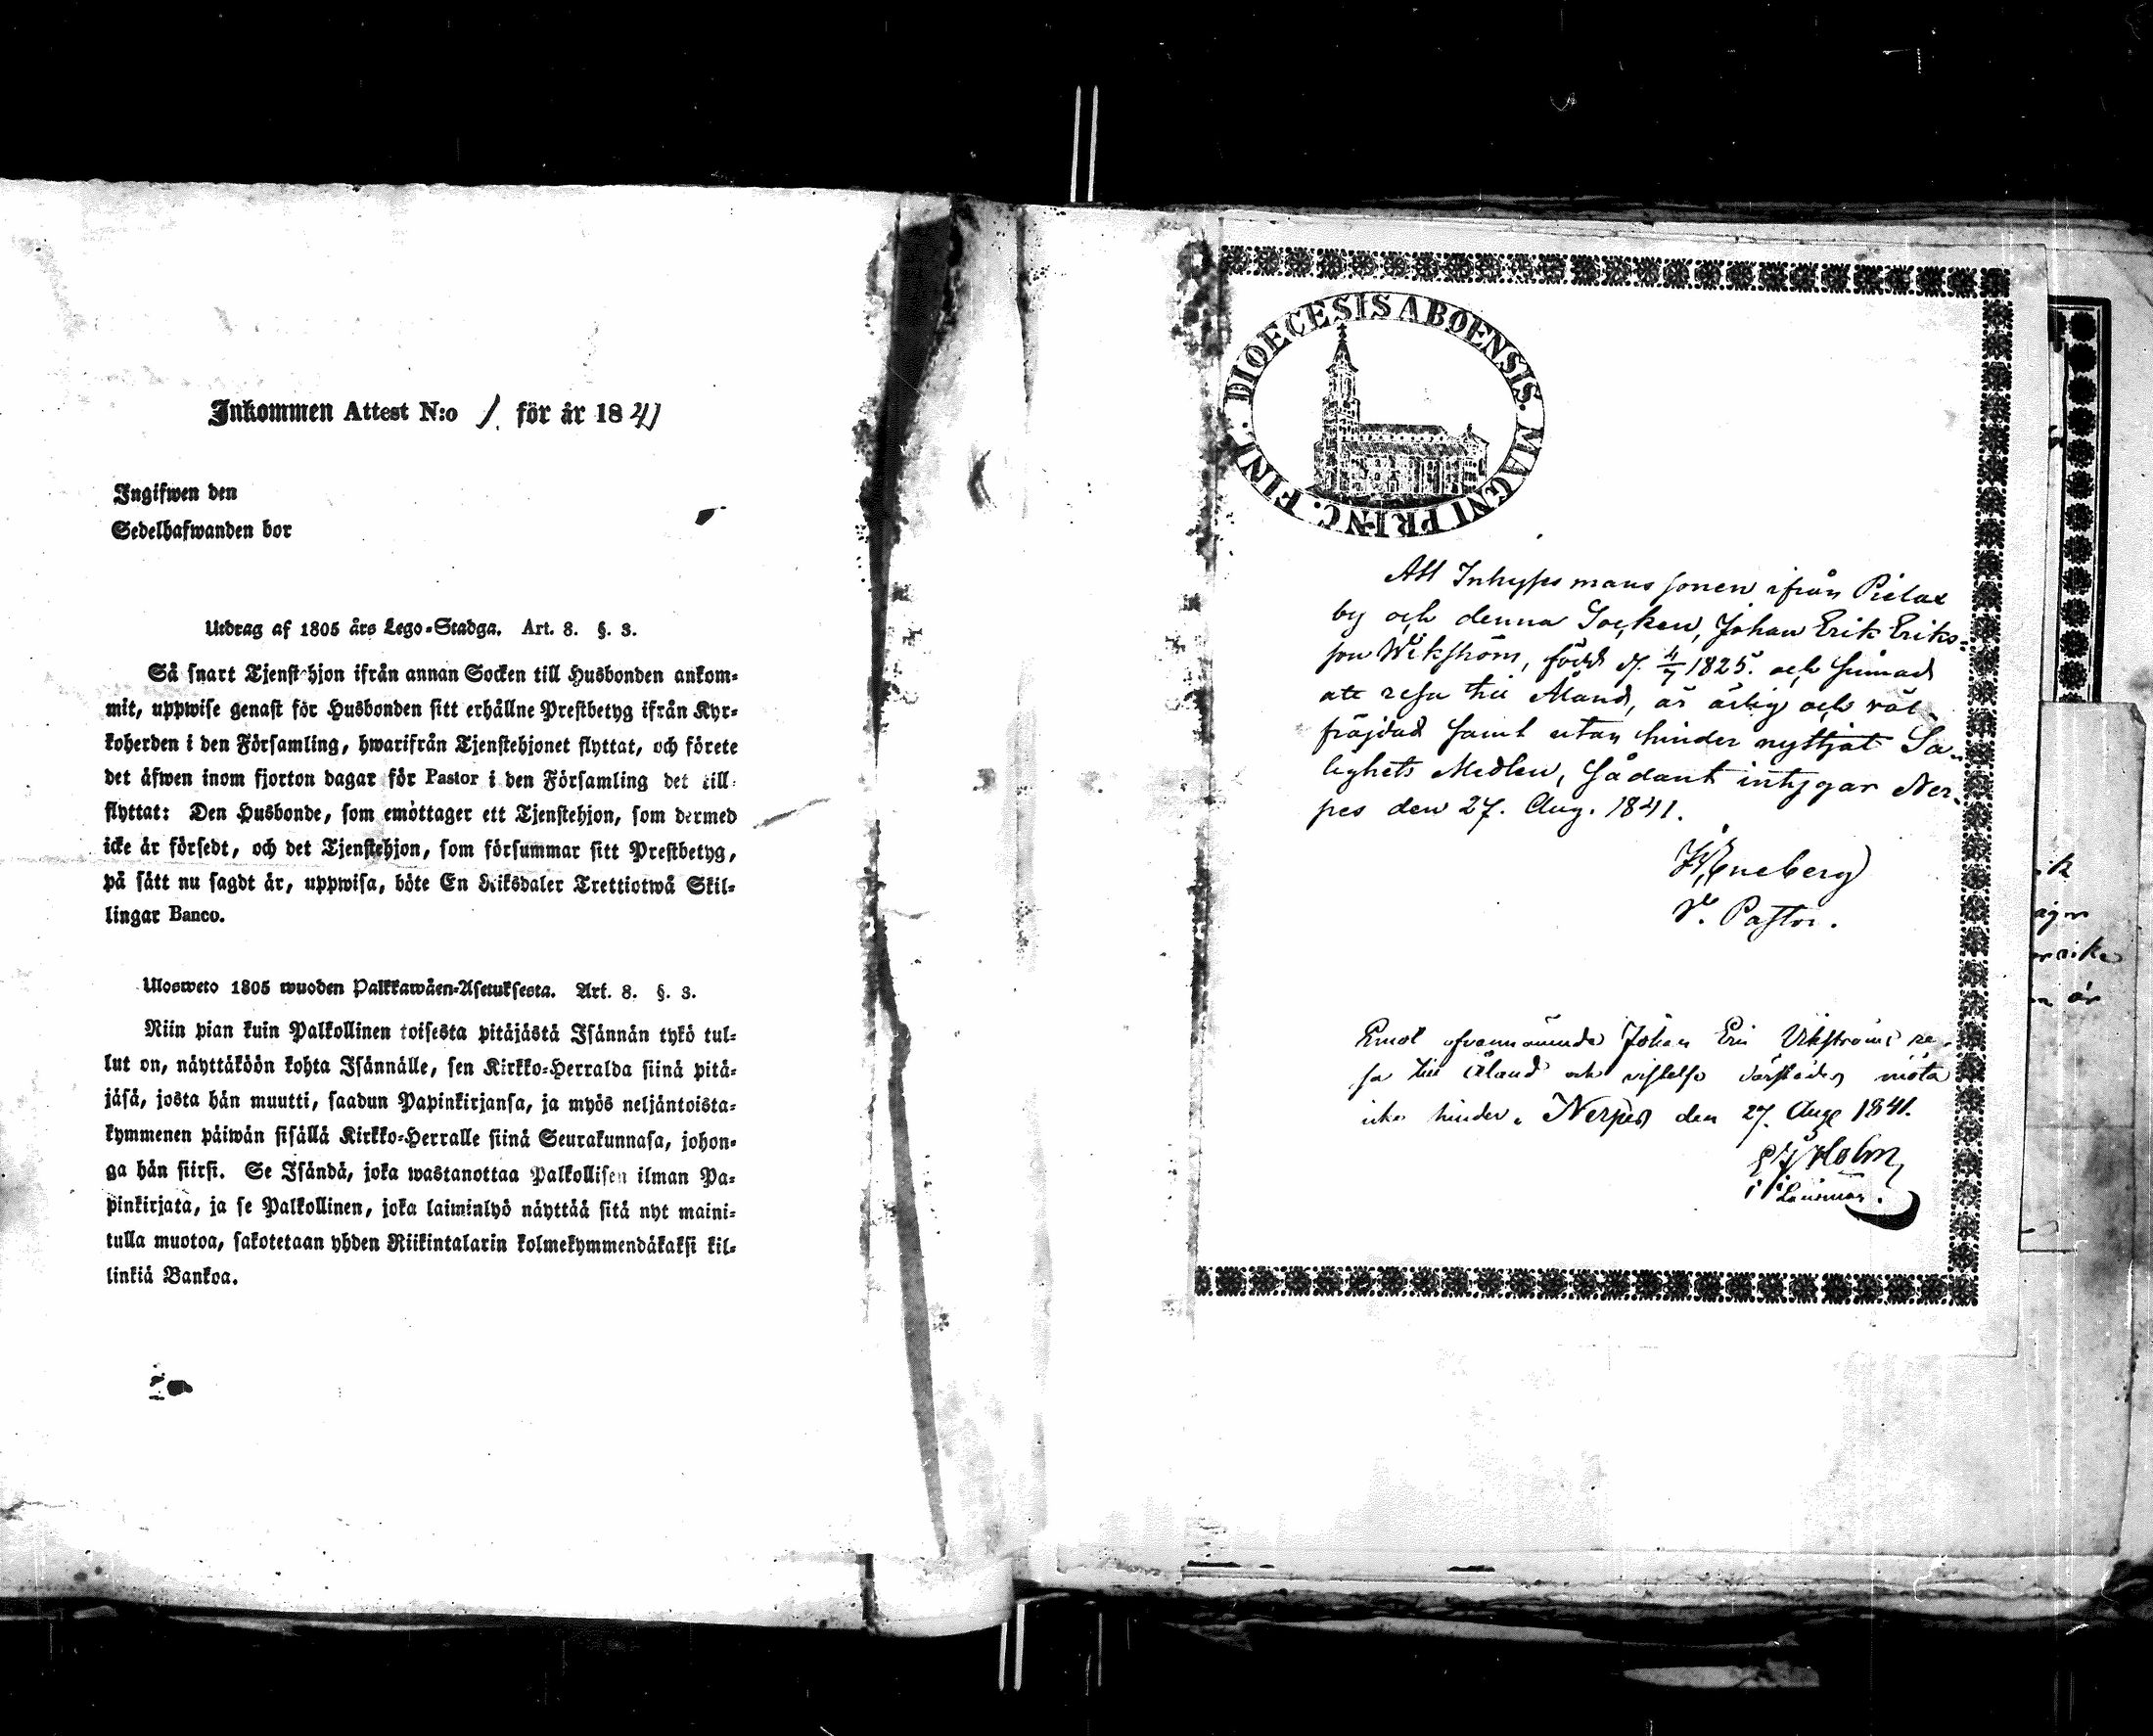 Inkommen Attest N:o 1. för år 1841
Ingifwen den
Sedelhafwanden bor
Utdrag af 1805 års Lego-Stadga. Art. 8. §. 3.
Så snart Tjenstehjon ifrån annan Socken till Husbonden ankom-
mit, uppwise genast för Husbonden sitt erhållne Prestbetyg ifrån Kyr-
koherden i den Församling, hwarifrån Tjenstehjonet flyttat, och förete
det äfwen inom fjorton dagar för Pastor i den Församling det till-
flyttat: Den Husbonde, som emottager ett Tjenstehjon, som dermed
icke är försedt, och det Tjenstehjon, som försummar sitt Prestbetyg,
på sätt nu sagdt är, uppwisa, böte En Riksdaler Trettiotwå Skil-
lingar Banco.
Ulosweto 1805 wuoden Palkkawäen-Asetuksesta. Art. 8. §. 3.
Niin pian kuin Palkollinen toisesta pitäjästä Isännän tykö tul-
lut on, näyttäköön kohta Isännälle, sen Kirkko-Herralda siinä pitä-
jäsä, josta hän muutti, saadun Papinkirjansa, ja myös neljäntoista-
kymmenen päiwän sisällä Kirkko-Herralle siinä Seurakunnasa, johon-
ga hän siirsi. Se Isändä, joka wastanottaa Palkollisen ilman Pa-
pinkirjata, ja se Palkollinen, joka laiminlyö näyttää sitä nyt maini-
tulla muotoa, sakotetaan yhden Riikintalarin kolmekymmendäkaksi kil-
linkiä Bankoa.
DIOECESIS ABOENSIS. MAGNI PRINC. FINL.
Att Inhyses mans sonen ifrån Pielax
by och denna Socken, Johan Erik Eriks-
son Wikström, född d. 4/7 1825. och sinnad
att resa till Åland, är ärlig och väl-
fräjdad samt utan hinder nyttjat Sa-
lighets Medlen, sådant intygar Ner-
pes den 27. Aug. 1841.
Eneberg
V. Pastor.
Emot ofvannämnde Johan Eric Vikströms re-
sa till Åland och vistelse därstädes möta
icke hinder. Nerpes den 27. Aug 1841.
Holm
Länsman.